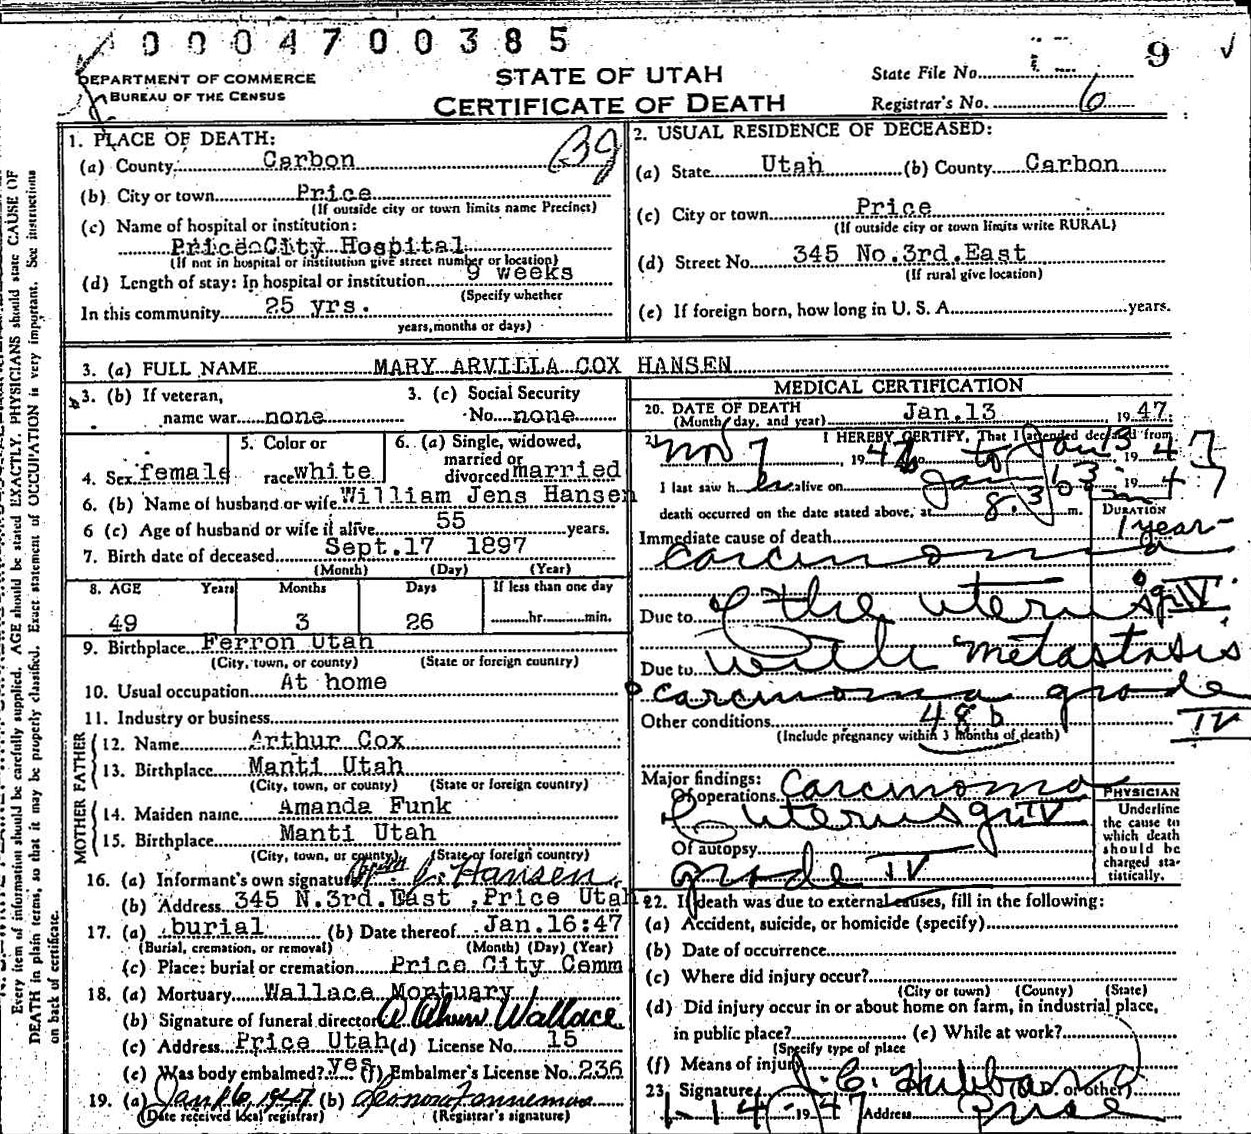 0004700385
9
DEPARTMENT OF COMMERCE
BUREAU OF THE CENSUS
STATE OF UTAH
CERTIFICATE OF DEATH
State File No.
Registrar's No. 6
1. PLACE OF DEATH:
(a) County Carbon
(b) City or town Price
(If outside city or town limits name Precinct)
(c) Name of hospital or institution:
Price City Hospital
(If not in hospital or institution give street number or location)
(d) Length of stay: In hospital or institution 9 weeks
(Specify whether
In this community 25 yrs.
years, months or days)
2. USUAL RESIDENCE OF DECEASED:
(a) State Utah (b) County Carbon
(c) City or town Price
(If outside city or town limits write RURAL)
(d) Street No. 345 No.3rd.East
(If rural give location)
(e) If foreign born, how long in U. S. A. years.
3. (a) FULL NAME MARY ARVILLA COX HANSEN
3. (b) If veteran,
name war none
3. (c) Social Security
No. none
4. Sex female
5. Color or
race white
6. (a) Single, widowed,
married or
divorced married
6. (b) Name of husband or wife William Jens Hansen
6 (c) Age of husband or wife if alive 55 years.
7. Birth date of deceased Sept.17 1897
(Month) (Day) (Year)
8. AGE Years Months Days If less than one day
49 3 26 hr. min.
9. Birthplace Ferron Utah
(City, town, or county) (State or foreign country)
10. Usual occupation At home
11. Industry or business
FATHER
12. Name Arthur Cox
13. Birthplace Manti Utah
(City, town, or county) (State or foreign country)
MOTHER
14. Maiden name Amanda Funk
15. Birthplace Manti Utah
(City, town, or county) (State or foreign country)
16. (a) Informant's own signature J. Hansen
(b) Address 345 N.3rd.East ,Price Utah
17. (a) burial (b) Date thereof Jan.16:47
(Burial, cremation, or removal) (Month) (Day) (Year)
(c) Place: burial or cremation Price City Cemm
18. (a) Mortuary Wallace Mortuary
(b) Signature of funeral director Wallace
(c) Address Price Utah (d) License No. 15
(e) Was body embalmed? yes (f) Embalmer's License No. 236
19. (a) Jan 16, 1947 (b)
(Date received local registrar) (Registrar's signature)
MEDICAL CERTIFICATION
20. DATE OF DEATH Jan.13 1947.
(Month, day, and year)
21. I HEREBY CERTIFY, That I attended deceased from
Nov 7, 194 to Jan 13 1947
I last saw her alive on Jan 13 1947
death occurred on the date stated above, at 8.30 m.
DURATION
Immediate cause of death 1 year
carcinoma
Due to of the uterus gr IV
Due to with metastasis
carcinoma grade IV
Other conditions 48b
(Include pregnancy within 3 months of death)
Major findings:
Of operations carcinoma
of uterus gr IV
Of autopsy
grade IV
PHYSICIAN
Underline
the cause to
which death
should be
charged sta-
tistically.
22. If death was due to external causes, fill in the following:
(a) Accident, suicide, or homicide (specify)
(b) Date of occurrence
(c) Where did injury occur?
(City or town) (County) (State)
(d) Did injury occur in or about home on farm, in industrial place,
in public place? (e) While at work?
(Specify type of place
(f) Means of injury
23. Signature J. C. Hubbard or other)
1-14-1947 Address Price
Every item of information should be carefully supplied. AGE should be stated EXACTLY. PHYSICIANS should state CAUSE OF
DEATH in plain terms, so that it may be properly classified. Exact statement of OCCUPATION is very important. See instructions
on back of certificate.